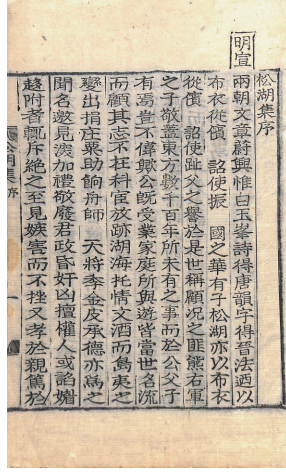 明宣
松湖集序
兩朝文章蔚興惟白玉峯詩得唐韻字得晉法迺以
布衣從儐 詔使振 國之華有子松湖亦以布衣
從儐 詔使趾父之譽於是世稱顧況之匪熊右軍
之子敬蓋東方數千百年所未有之事而於公父子
有焉豈不偉歟公旣受業家庭所與遊皆當世名流
而顧其志不在科宦放跡湖海托情文酒而島夷之
變出捐庄粟助餉舟師 天將李金皮承德亦爲之
聞名邀見淺加禮敬廢君政昏奸凶擅權人或諂媚
趍附者輒斥絶之至見嫉害而不挫又孝於親篤於
松湖集 序 一